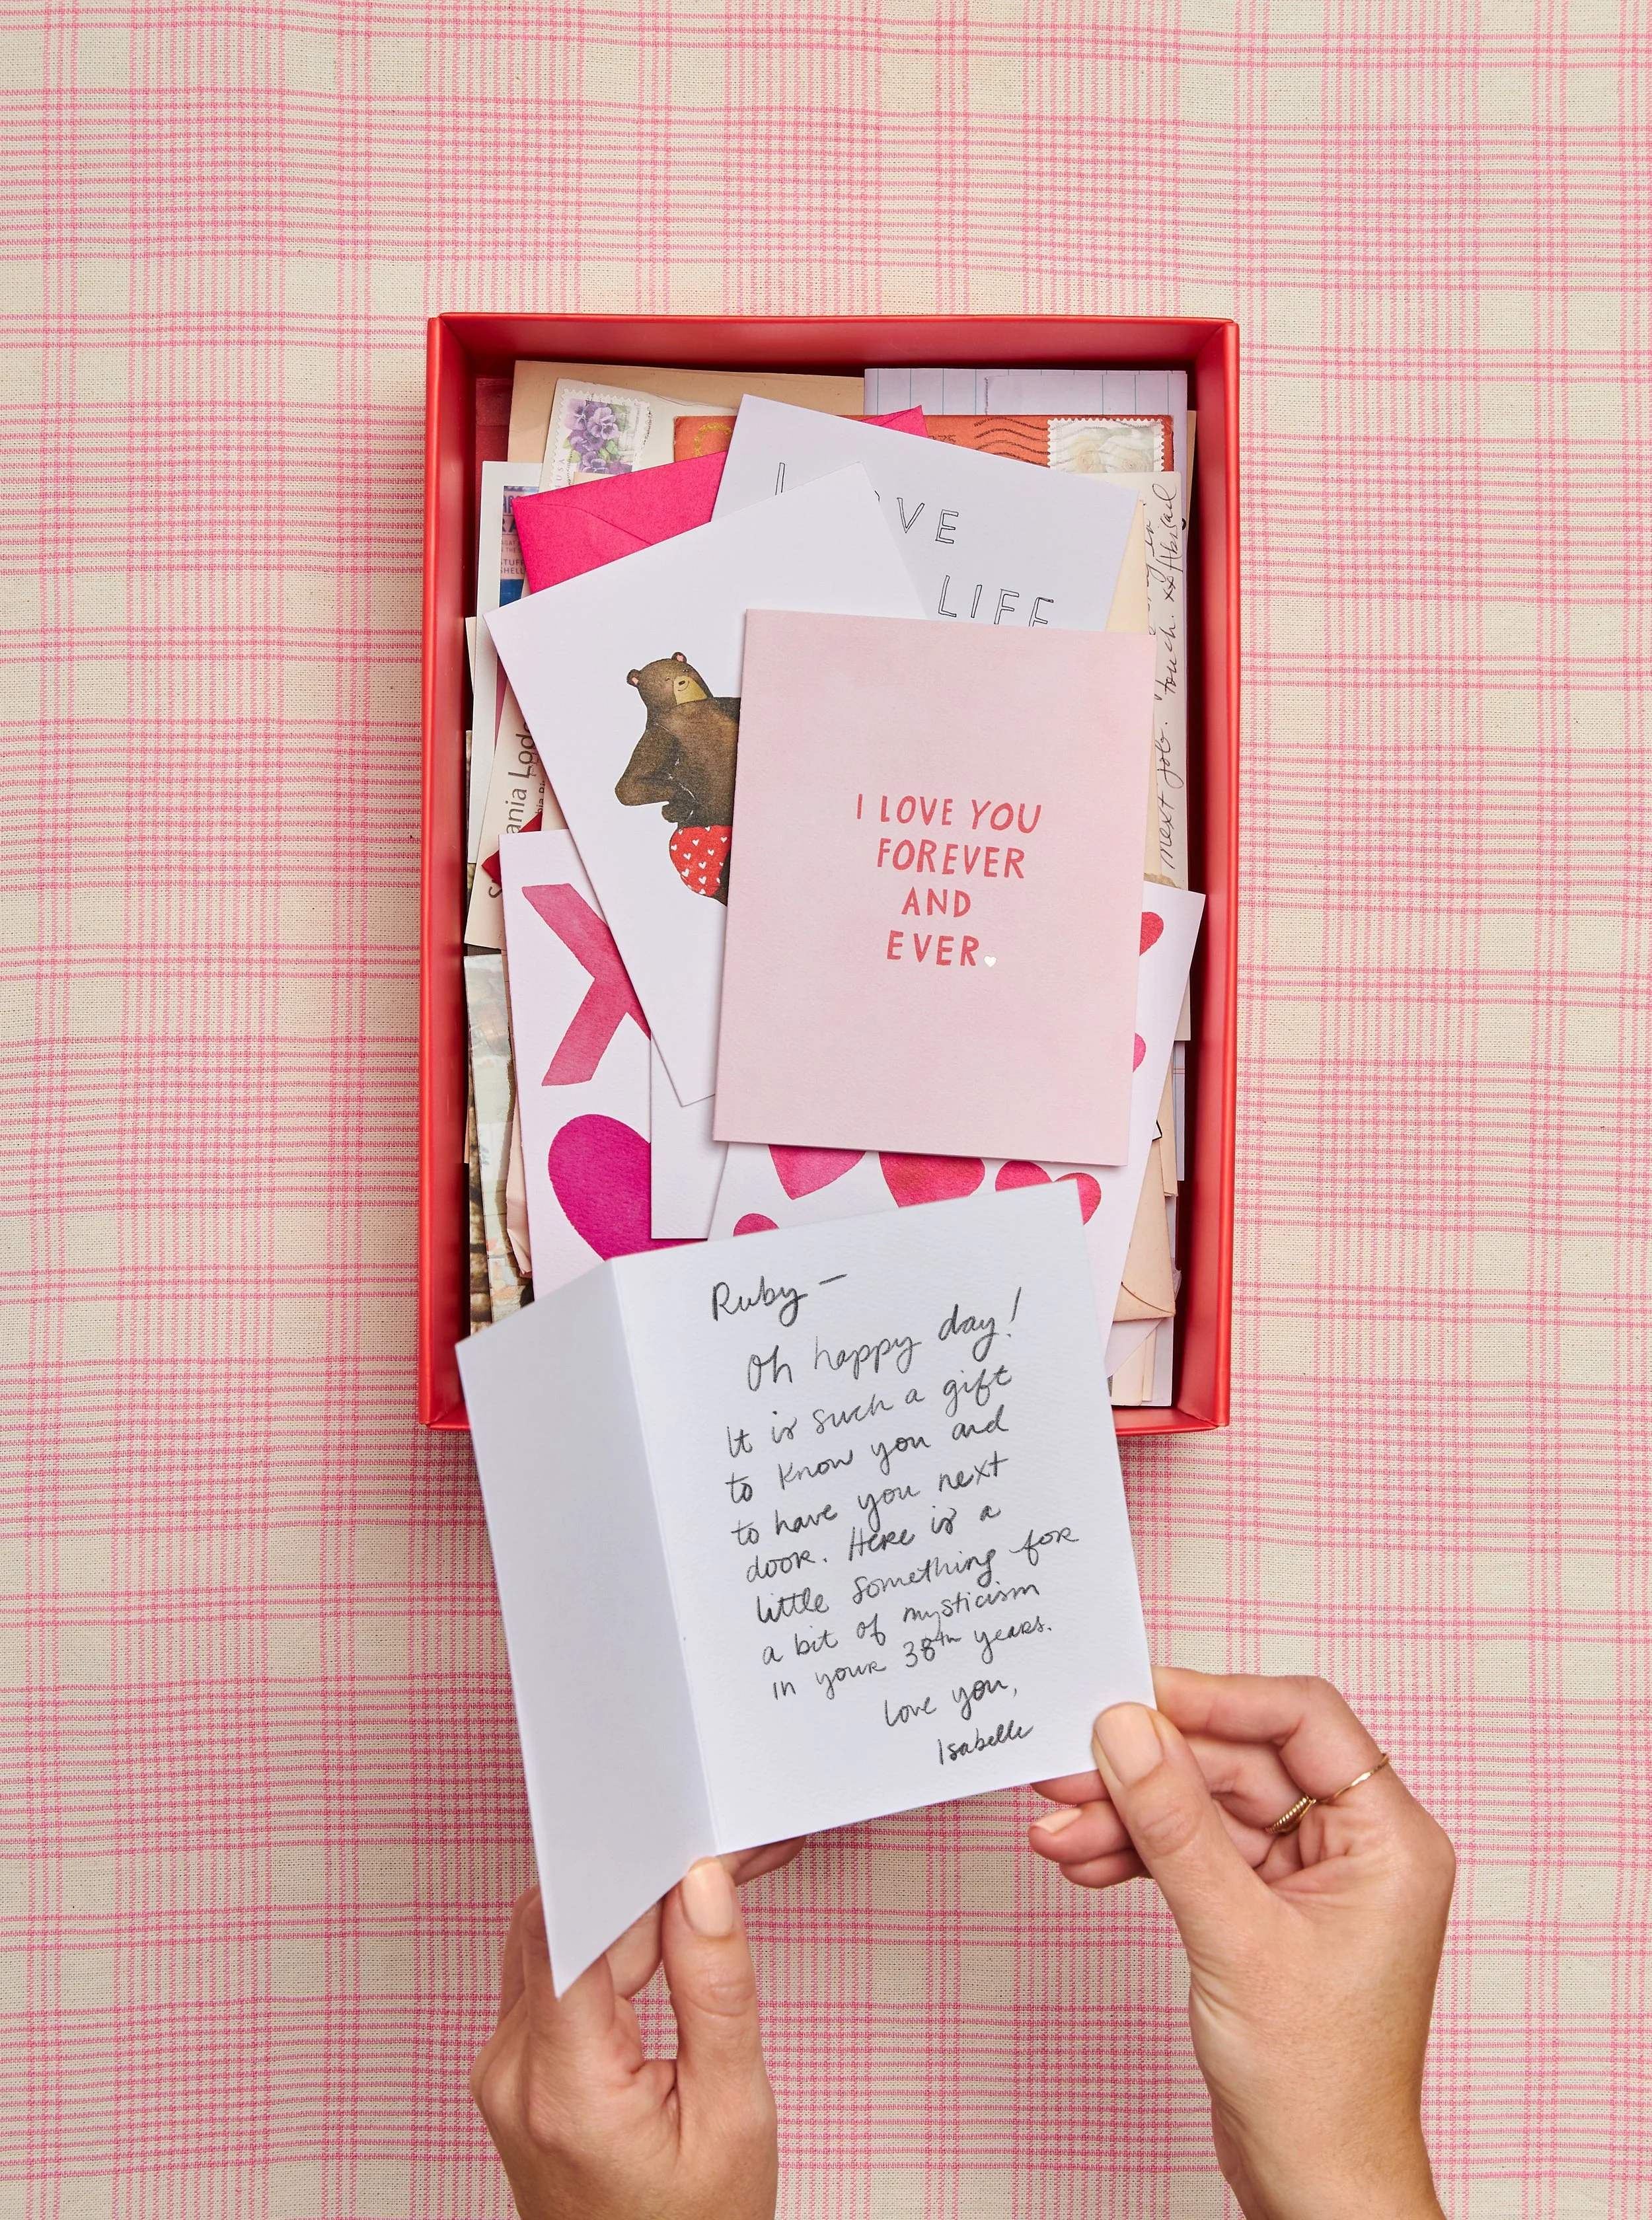 VE
LIFE
touch. xx Abigail
next job.
ania
I LOVE YOU
FOREVER
AND
EVER.
Ruby —
Oh happy day!
It is such a gift
to know you and
to have you next
door. Here is a
little something for
a bit of mysticism
in your 38th years.
Love you,
Isabelle